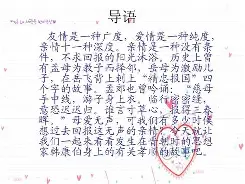 导语
友情是一种广度，爱情是一种纯度，
亲情十一种深度。亲情是一种没有条
件、不求回报的阳光沐浴。历史上曾
有孟母为教子而择邻，岳母为激励儿
子，在岳飞背上刺上“精忠报国”四
个字的故事。孟郊也曾吟诵：“慈母
手中线，游子身上衣。临行密密缝，
意恐迟迟归。谁言寸草心，报得三春
晖。”母爱无声，可我们有多少时候
想过去回报这无声的亲情！今天就让
我们一起来看看发生在晋朝时的思想
家韩康伯身上的有关孝顺的故事吧。